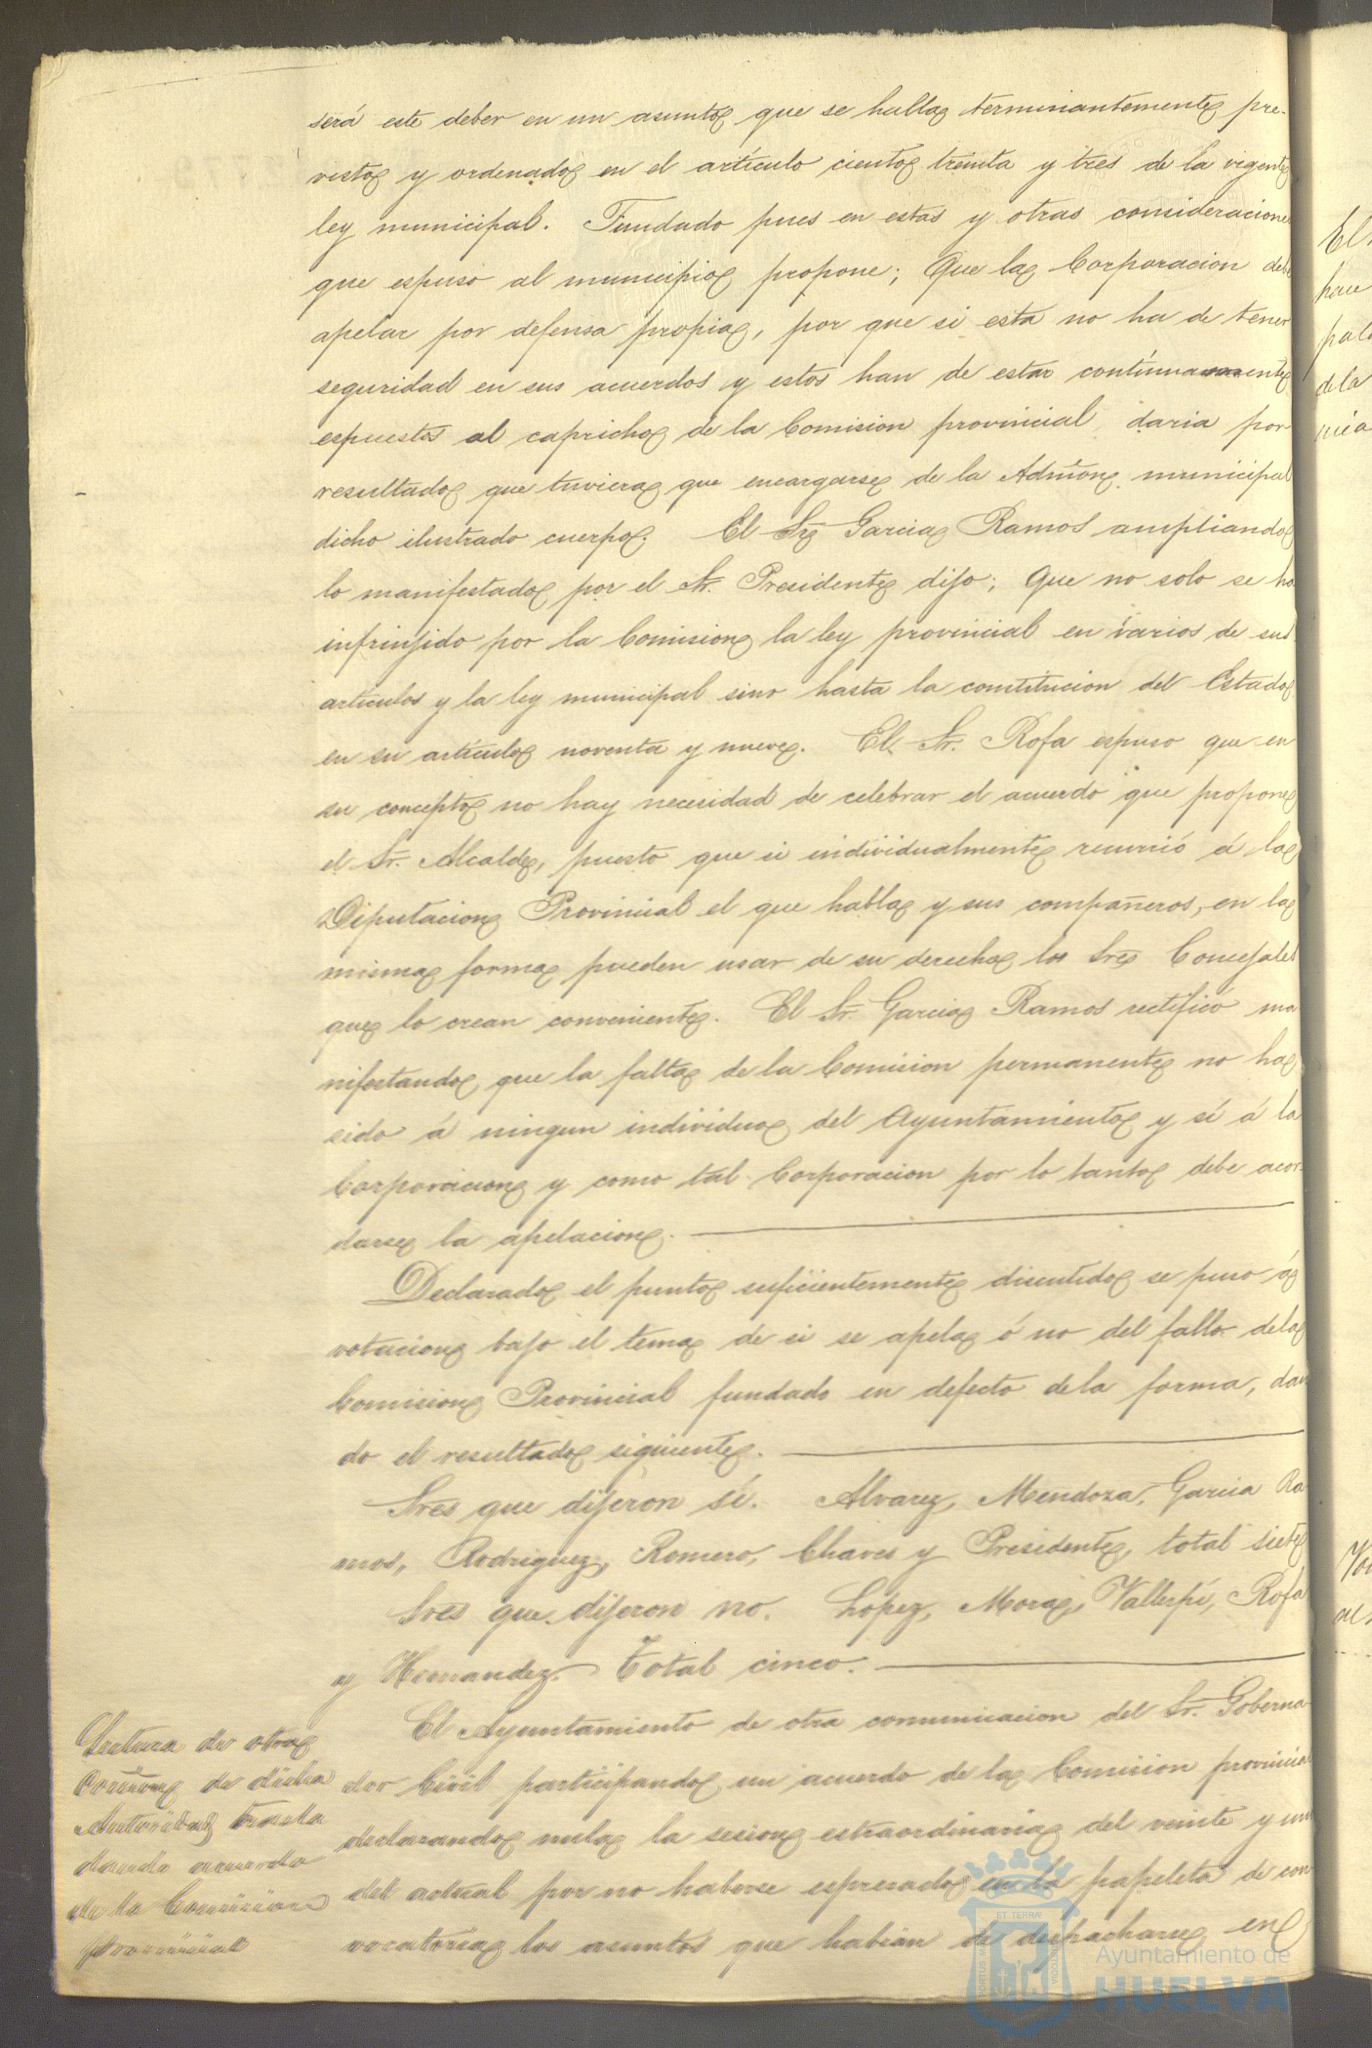 será este deber en un asunto que se halla terminantemente pre-
visto y ordenado en el artículo ciento treinta y tres de la vigente
ley municipal. Fundado pues en estas y otras consideraciones
que espuso al municipio propone; Que la Corporacion debe
apelar por defensa propia, por que si esta no ha de tener
seguridad en sus acuerdos y estos han de estar contínuamente
espuestos al capricho de la Comision provincial, daria por
resultado que tuviera que encargarse de la Admon. municipal
dicho ilustrado cuerpo. El Sr. Garcia Ramos ampliando
lo manifestado por el Sr. Presidente dijo; Que no solo se ha
infrinjido por la Comision la ley provincial en varios de sus
artículos y la ley municipal sino hasta la constitucion del Estado
en su artículo noventa y nueve. El Sr. Rofa espuso que en
su concepto no hay necesidad de celebrar el acuerdo que propone
el Sr. Alcalde, puesto que si individualmente recurrió á la
Diputacion Provincial el que habla y sus compañeros, en la
misma forma pueden usar de su derecho los Sres Concejales
que lo crean conveniente. El Sr. Garcia Ramos rectificó ma
nifestando que la falta de la Comision permanente no ha
sido á ningun individuo del Ayuntamiento y sí á la
Corporacion y como tal Corporacion por lo tanto debe acor
darse la apelacion.
Declarado el punto suficientemente discutido se puso á
votacion bajo el tema de si se apela ó no del fallo de la
Comision Provincial fundado en defecto de la forma, dan
do el resultado siguiente.
Sres que dijeron sí. Alvarez, Mendoza, Garcia Ra
mos, Rodriguez, Romero, Chaves y Presidente, total siete
Sres que dijeron no. Lopez, Mora, Vallespí, Rofa
y Hernandez. Total cinco.
El Ayuntamiento de otra comunicacion del Sr. Goberna
dor Civil participando un acuerdo de la Comision provincial
declarando nula la sesion estraordinaria del veinte y uno
del actual por no haberse espresado en la papeleta de con
vocatoria los asuntos que habian de despacharse en
Lectura de otra
Comunon de dicha
Autoridad trasla
dando acuerdo
de la Comision
provincial
El
pal
de la
Ayuntamiento de
HUELVA